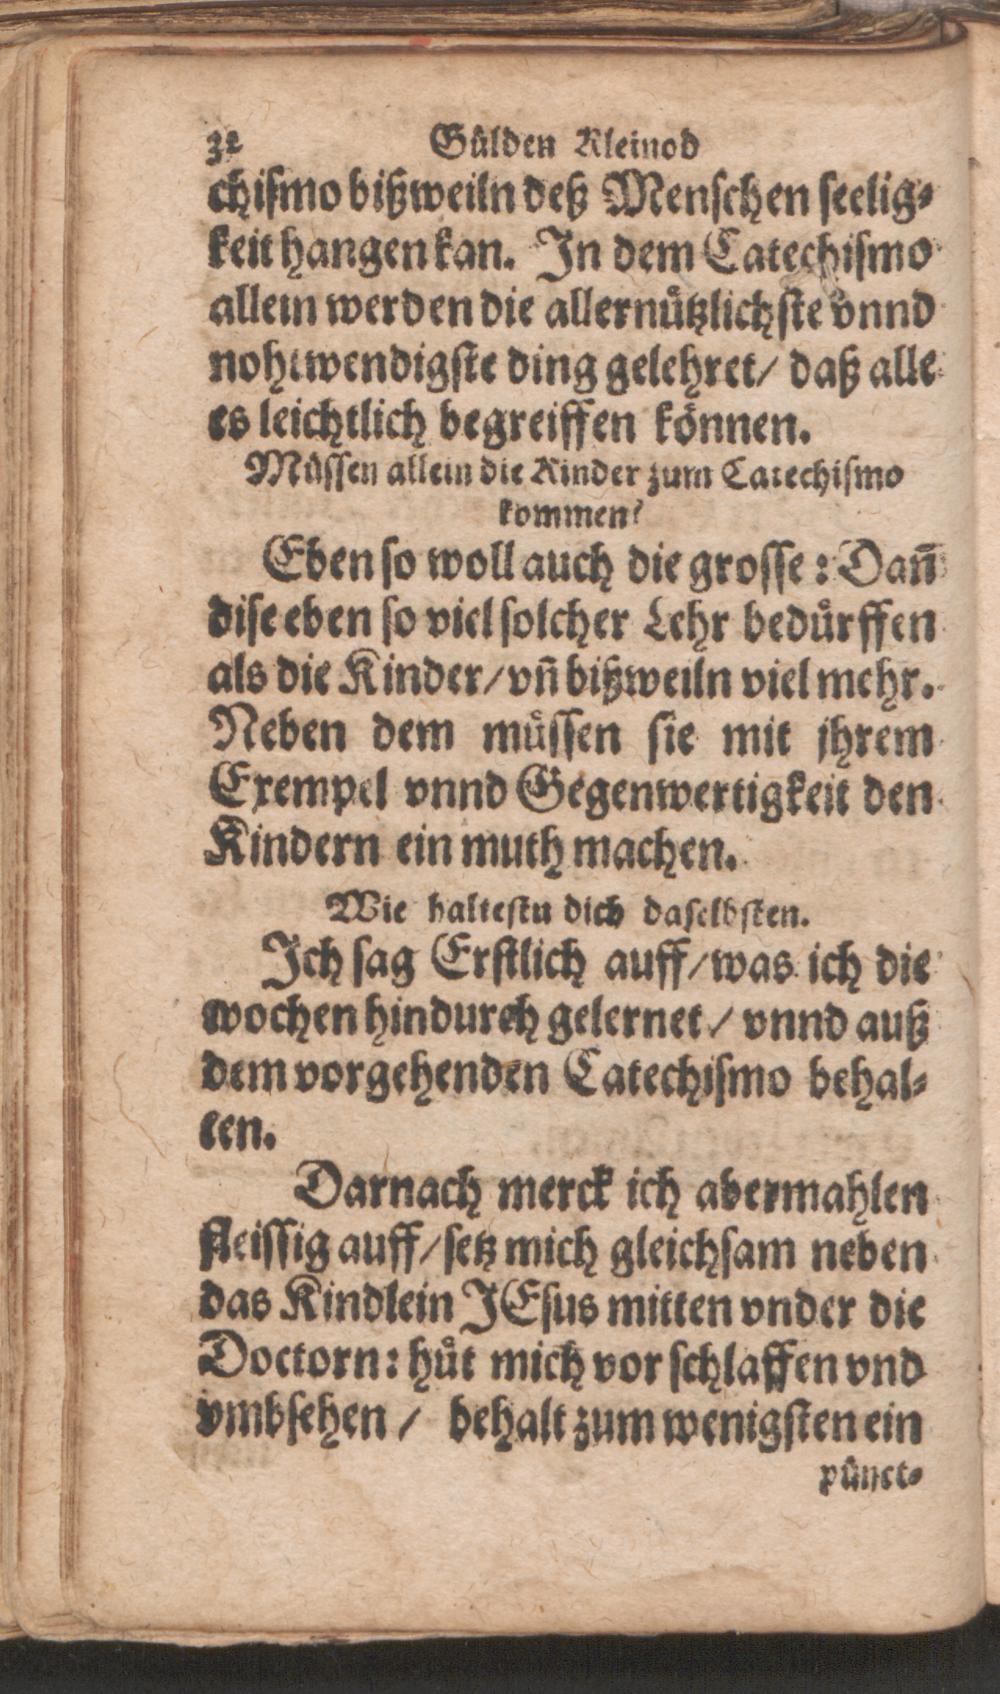 32 Gůlden Kleinod
chiſmo bißweiln deß Menſchen ſeelig⸗
keit hangen kan. In dem Catechiſmo
allein werden die allernůtzlichſte vnnd
nohtwendigſte ding gelehret/ daß alle
es leichtlich begreiffen koͤnnen.
Můſſen allein die Kinder zum Catechiſmo
kommen?
Eben ſo woll auch die groſſe: Dañ
diſe eben ſo viel ſolcher Lehr bedůrffen
als die Kinder/ vñ bißweiln viel mehr.
Neben dem můſſen ſie mit jhrem
Exempel vnnd Gegenwertigkeit den
Kindern ein muth machen.
Wie halteſtu dich daſelbſten.
Ich ſag Erſtlich auff/ was ich die
wochen hindurch gelernet/ vnnd auß
dem vorgehenden Catechiſmo behal⸗
ten.
Darnach merck ich abermahlen
fleiſſig auff/ ſetz mich gleichſam neben
das Kindlein JEſus mitten vnder die
Doctorn: hůt mich vor ſchlaffen vnd
vmbſehen/ behalt zum wenigſten ein
půnct⸗